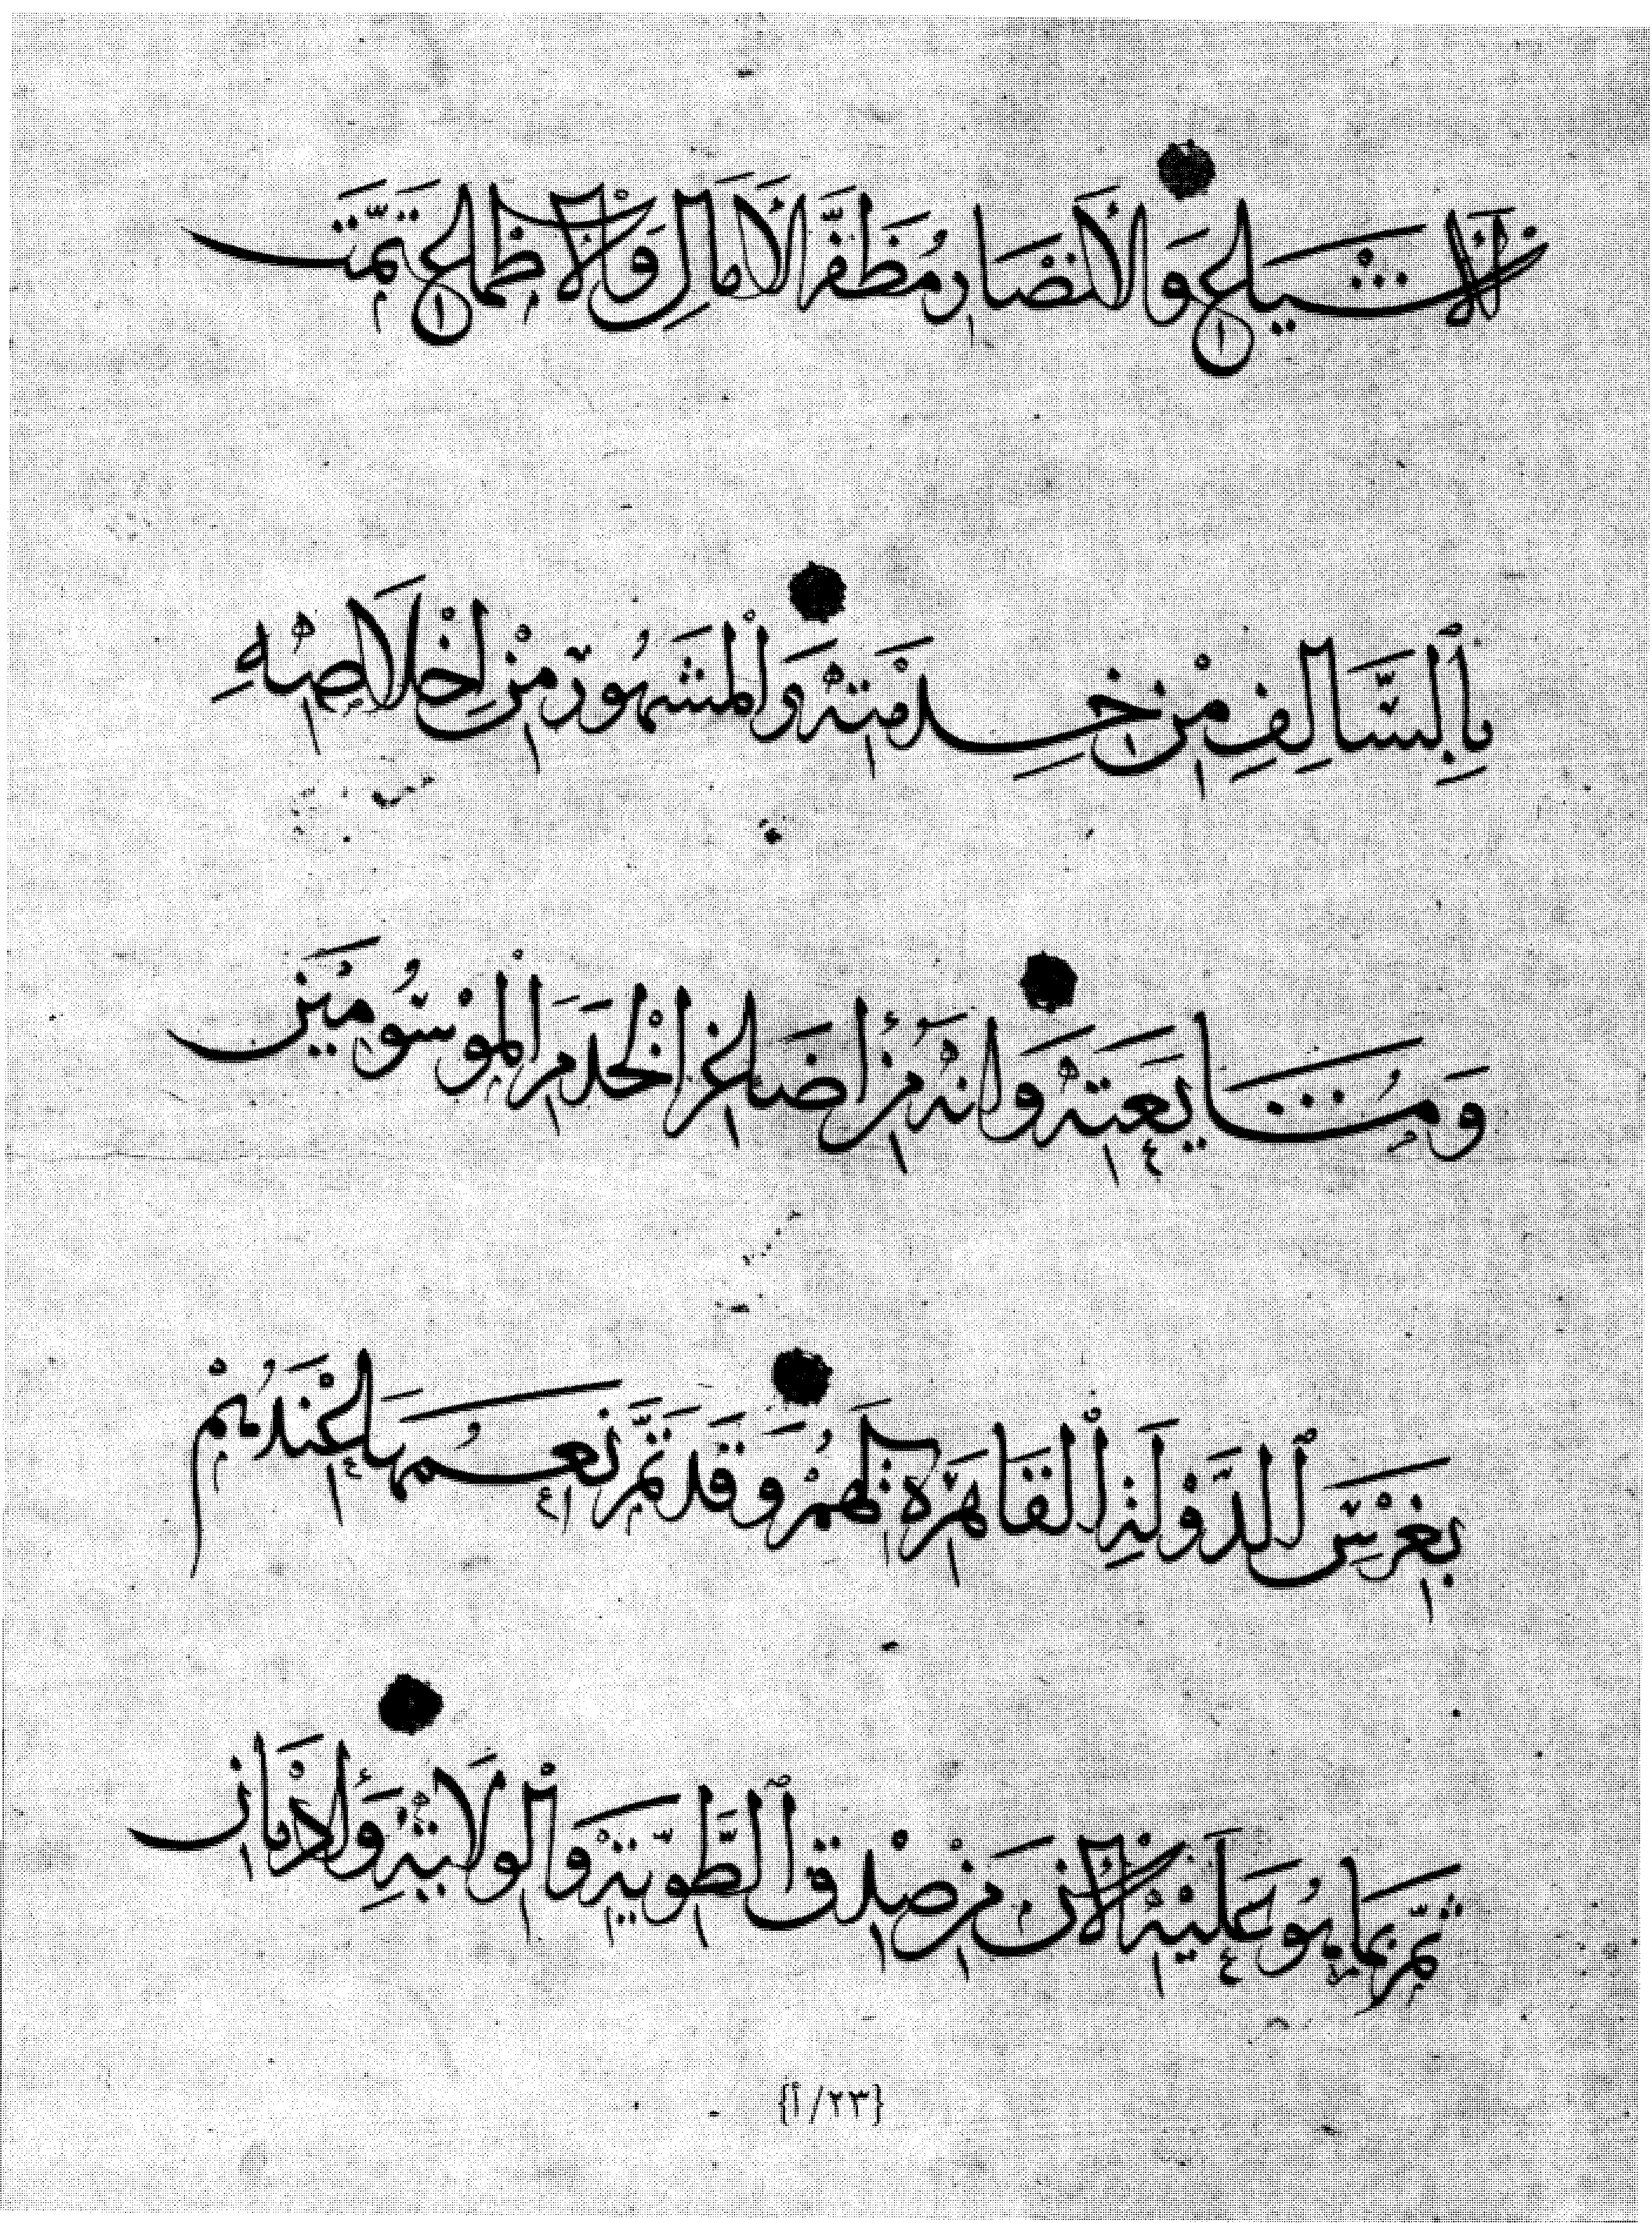 الأشياع والأنصار مظفر الآمال والأطماع تمت
بالسالف من خدمته والمشهور من إخلاصه
ومشايعته وأنه من أصاغر الخدم الموسومين
بغرس الدولة القاهرة لهم وقد تم نعمها عندهم
ثم بما هو عليه الآن من صدق الطوية والولاية
{٢٣/أ}